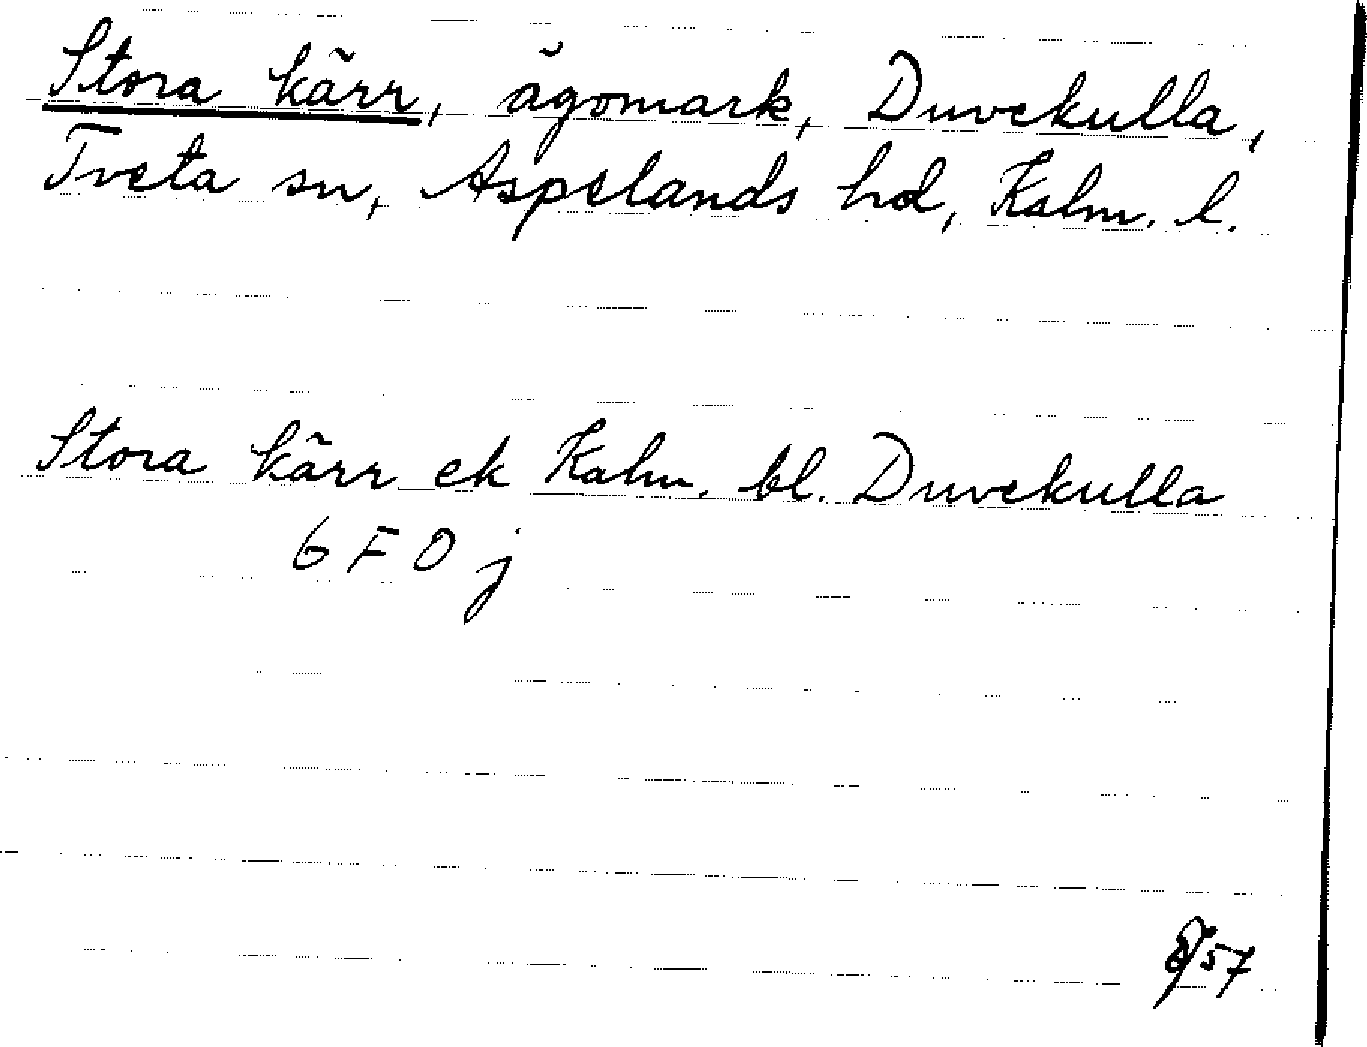 Stora kärr, ägomark, Duvekulla,
Tveta sn, Aspelands hd, Kalm. l.
Stora kärr ek Kalm. bl. Duvekulla
6 F 0 j
/57